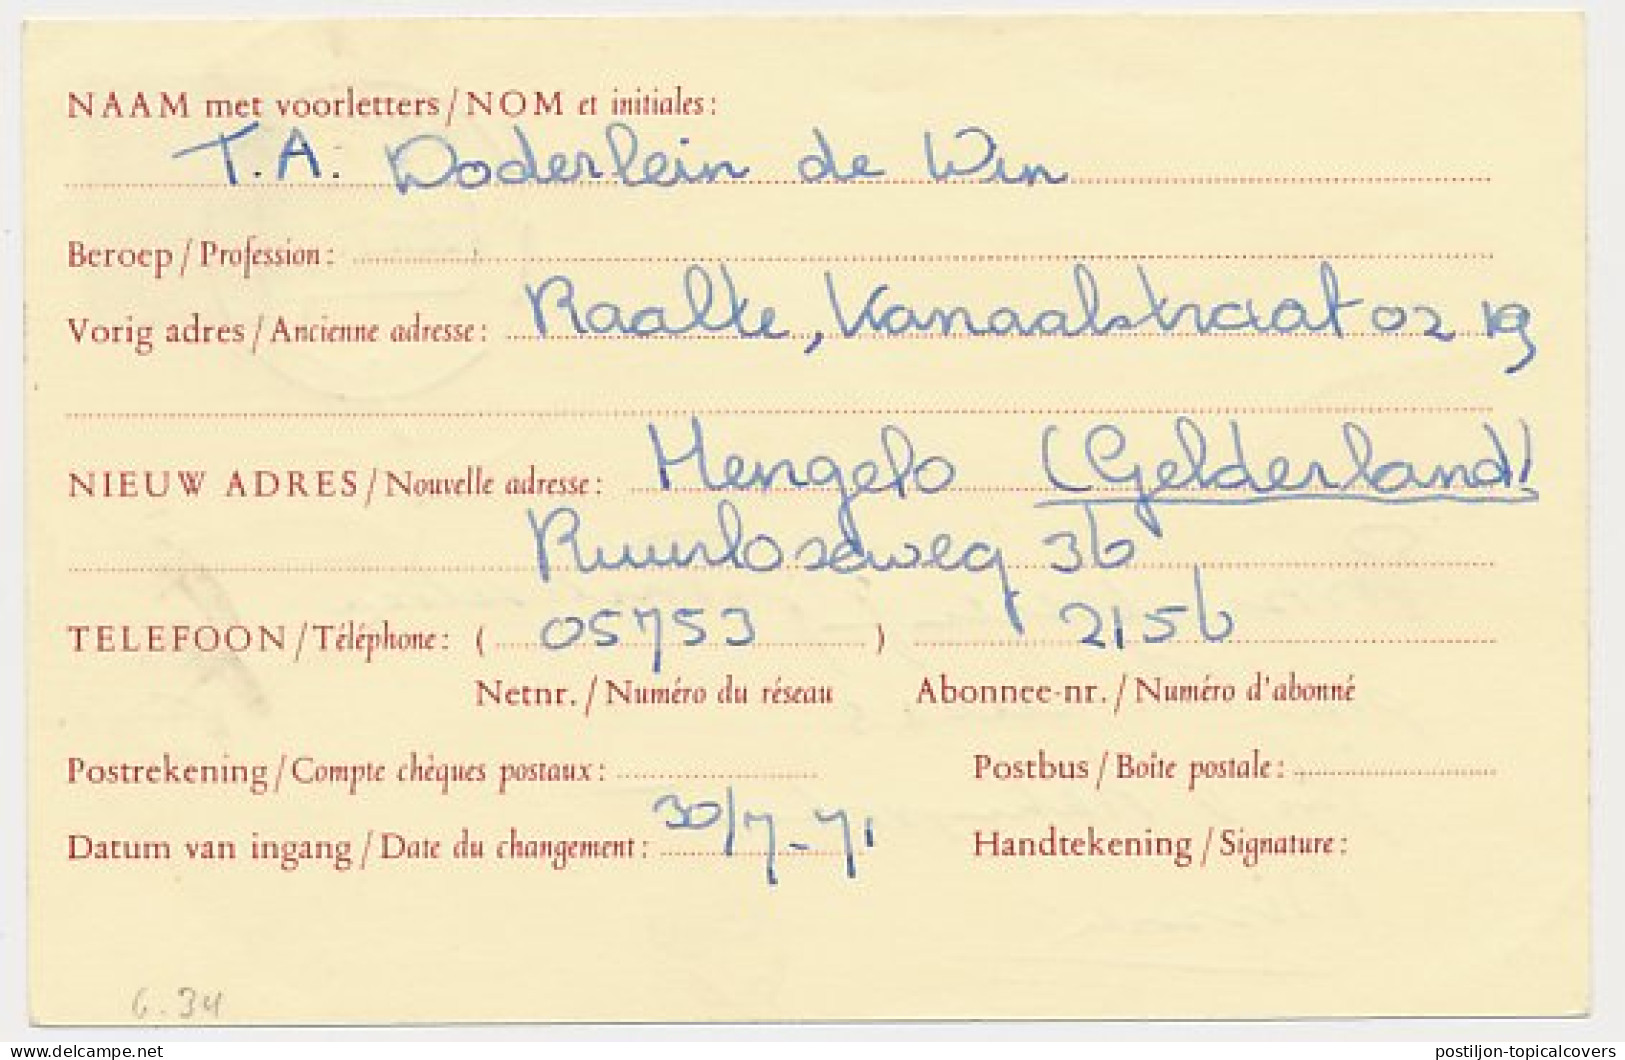 NAAM met voorletters / NOM et initiales:
T.A. Doderlein de Win
Beroep / Profession:
Vorig adres / Ancienne adresse: Raalte, Kanaalstraat oz 19
NIEUW ADRES / Nouvelle adresse: Hengelo (Gelderland)
Ruurloseweg 36
TELEFOON / Téléphone: ( 05753 ) 2156
Netnr. / Numéro du réseau Abonnee-nr. / Numéro d'abonné
Postrekening / Compte chèques postaux: Postbus / Boîte postale:
Datum van ingang / Date du changement: 30/7-71 Handtekening / Signature:
6.34
delcampe.net
postiljon-topicalcovers